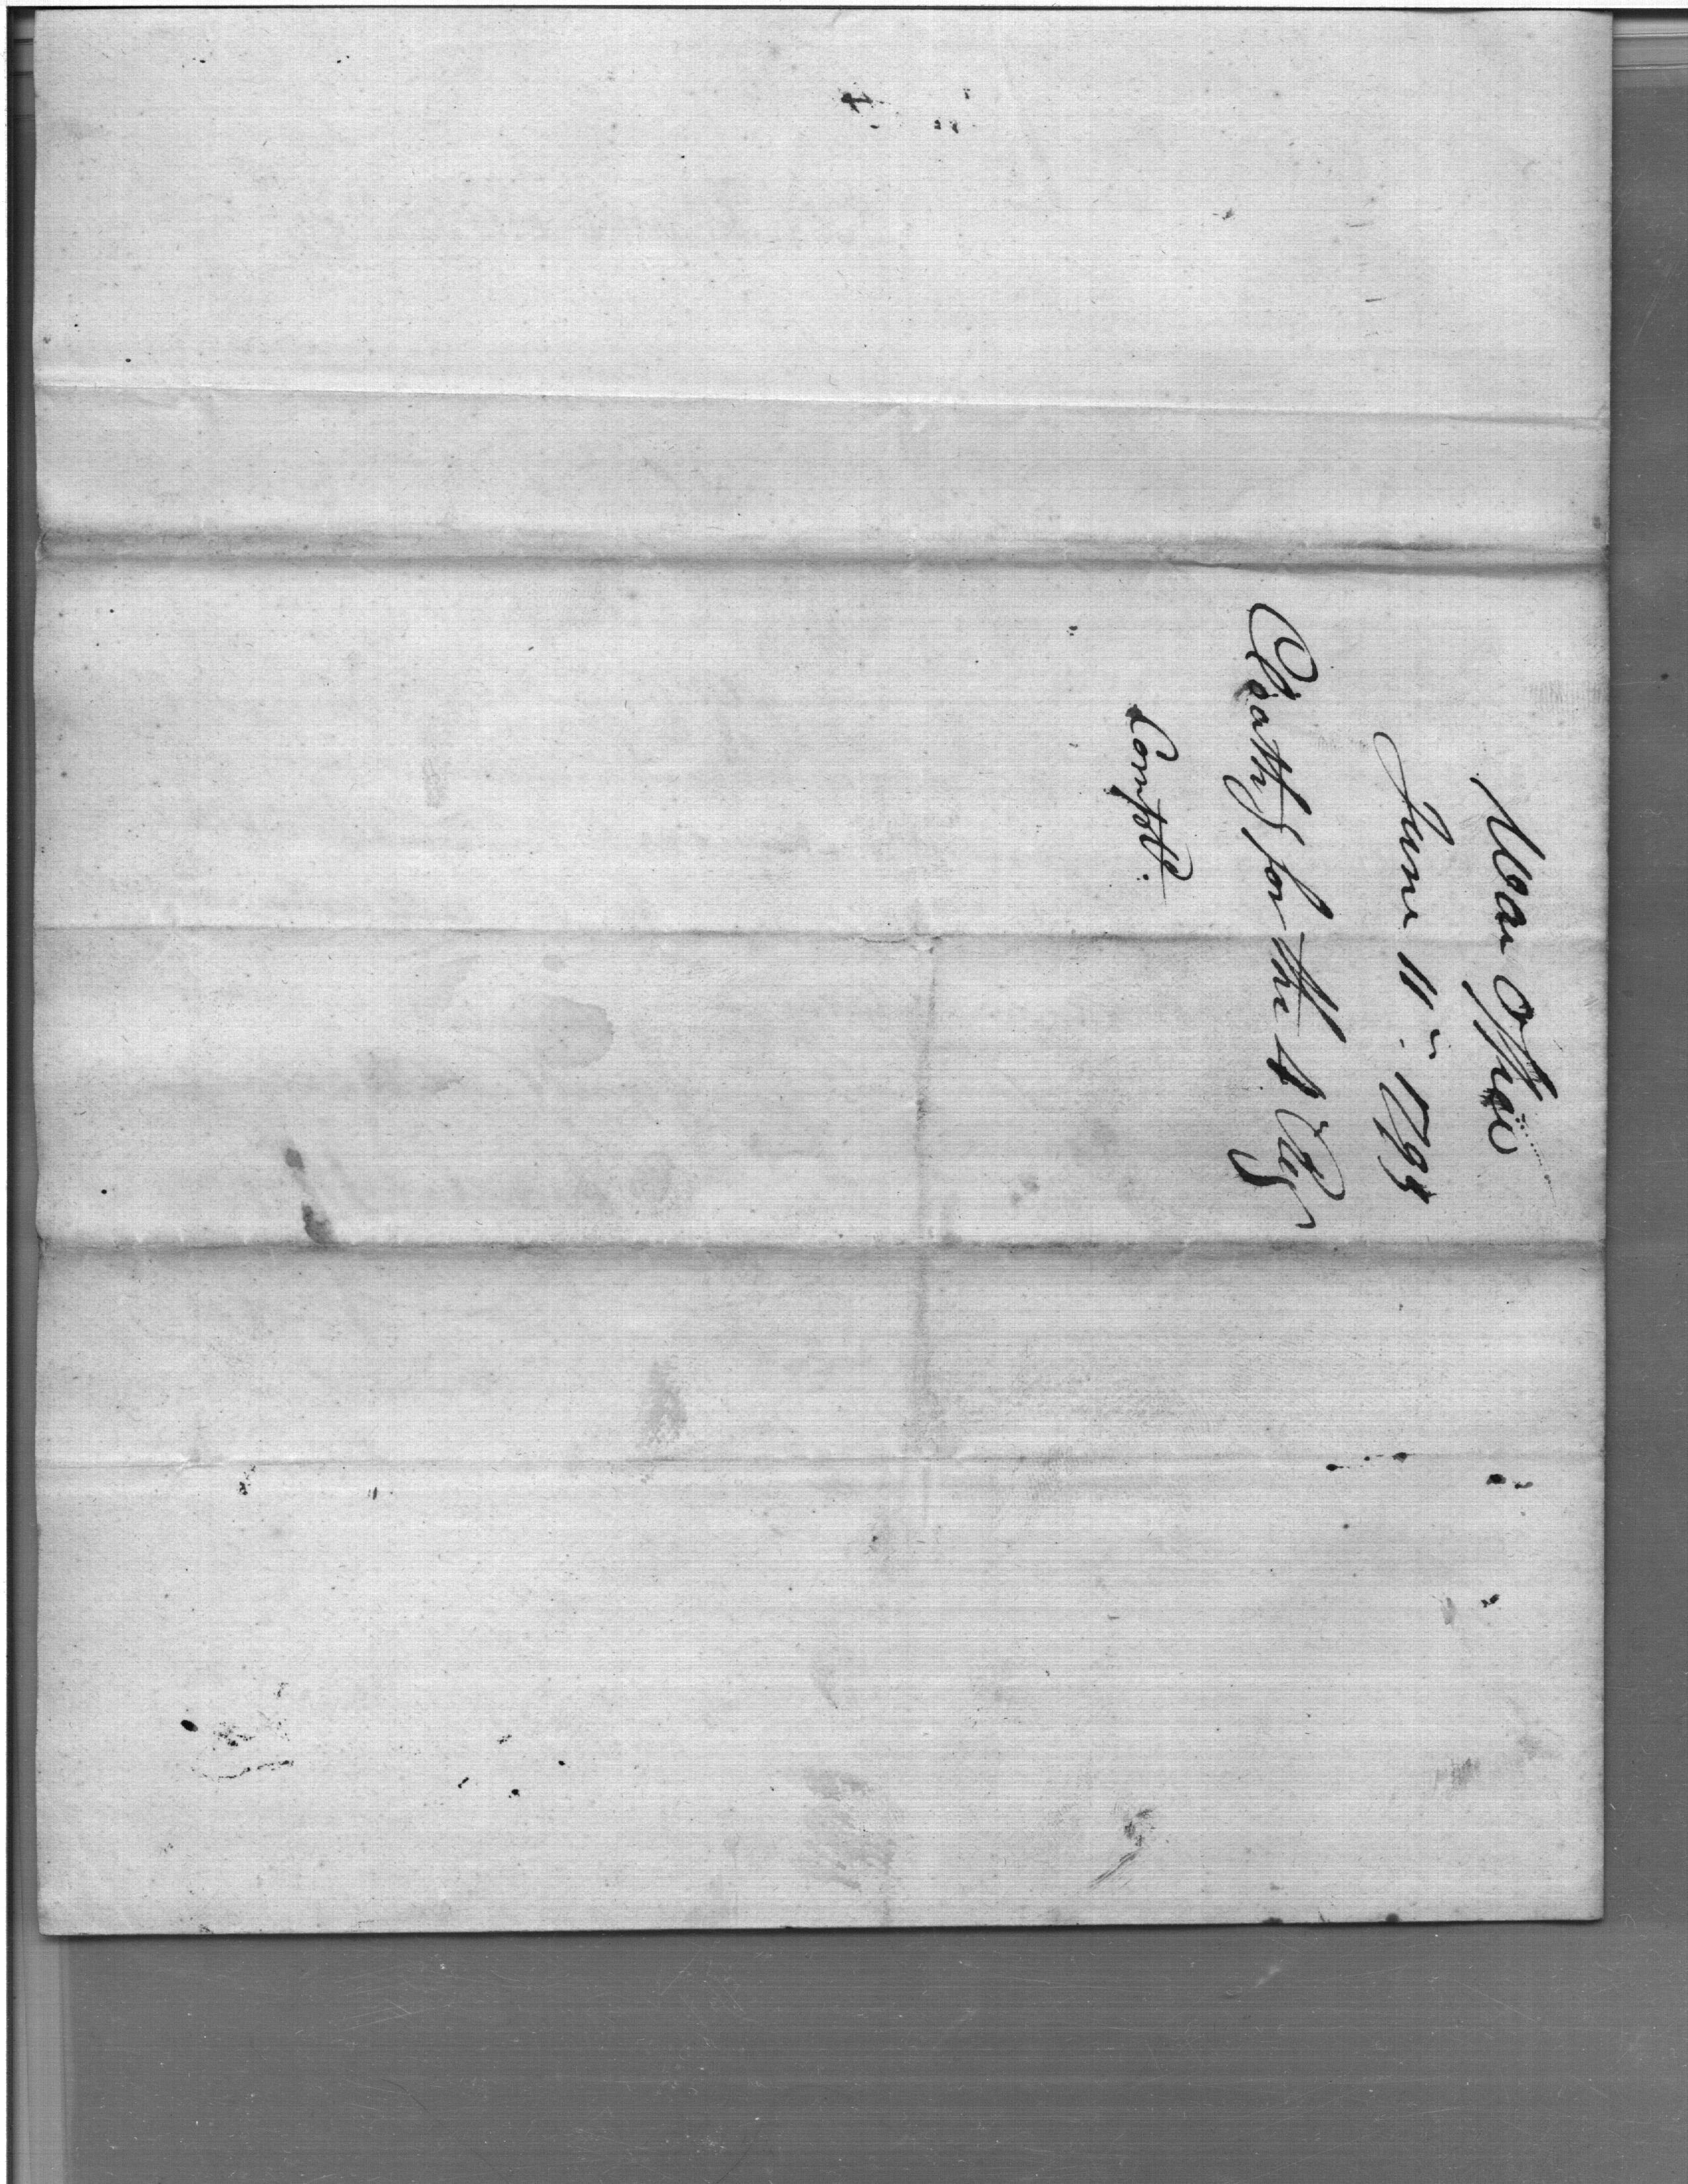 War Office
June 11th. 1794
Cloathg for the 4
Comptr.